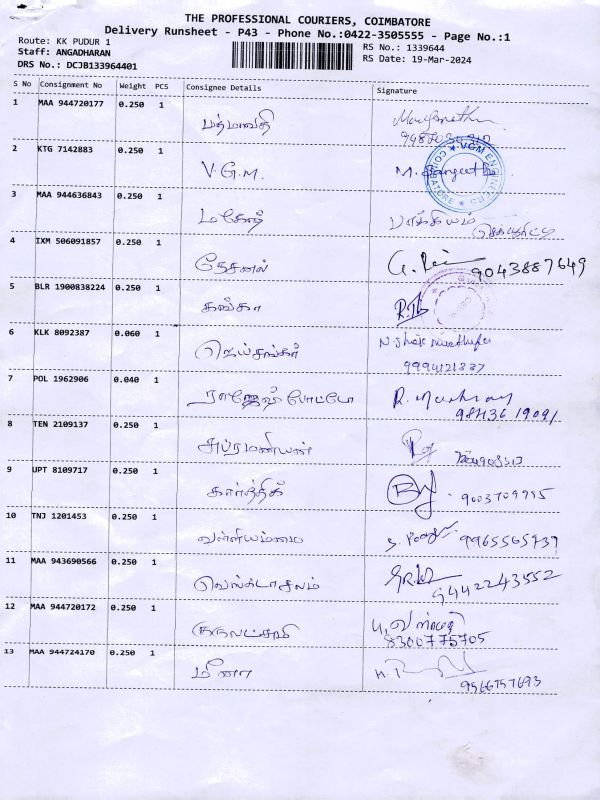 THE PROFESSIONAL COURIERS, COIMBATORE
Delivery Runsheet - P43 - Phone No.:0422-3505555 - Page No.:1
Route: KK PUDUR 1 RS No.: 1339644
Staff: ANGADHARAN RS Date: 19-Mar-2024
DRS No.: DCJB133964401
S No Consignment No Weight PCS Consignee Details Signature
1 MAA 944720177 0.250 1 பத்மாவதி
2 KTG 7142883 0.250 1 V.G.M.
3 MAA 944636843 0.250 1 மகேஷ் பாக்கியம்
4 IXM 506091857 0.250 1 நேசனல் 9043887649
5 BLR 1900838224 0.250 1 கங்கா
6 KLK 8092387 0.060 1 ஜெய்சங்கர்
9994121887
7 POL 1962906 0.040 1 ராஜேஷ் போட்டோ
9843619091
8 TEN 2109137 0.250 1 சுப்ரமணியன்
9 UPT 8109717 0.250 1 கார்த்திக் 9003709995
10 TNJ 1201453 0.250 1 வள்ளியம்மை 9965565737
11 MAA 943690566 0.250 1 வெங்கடாசலம்
9442243552
12 MAA 944720172 0.250 1
8300775705
13 MAA 944724170 0.250 1 மீனா
9566757693